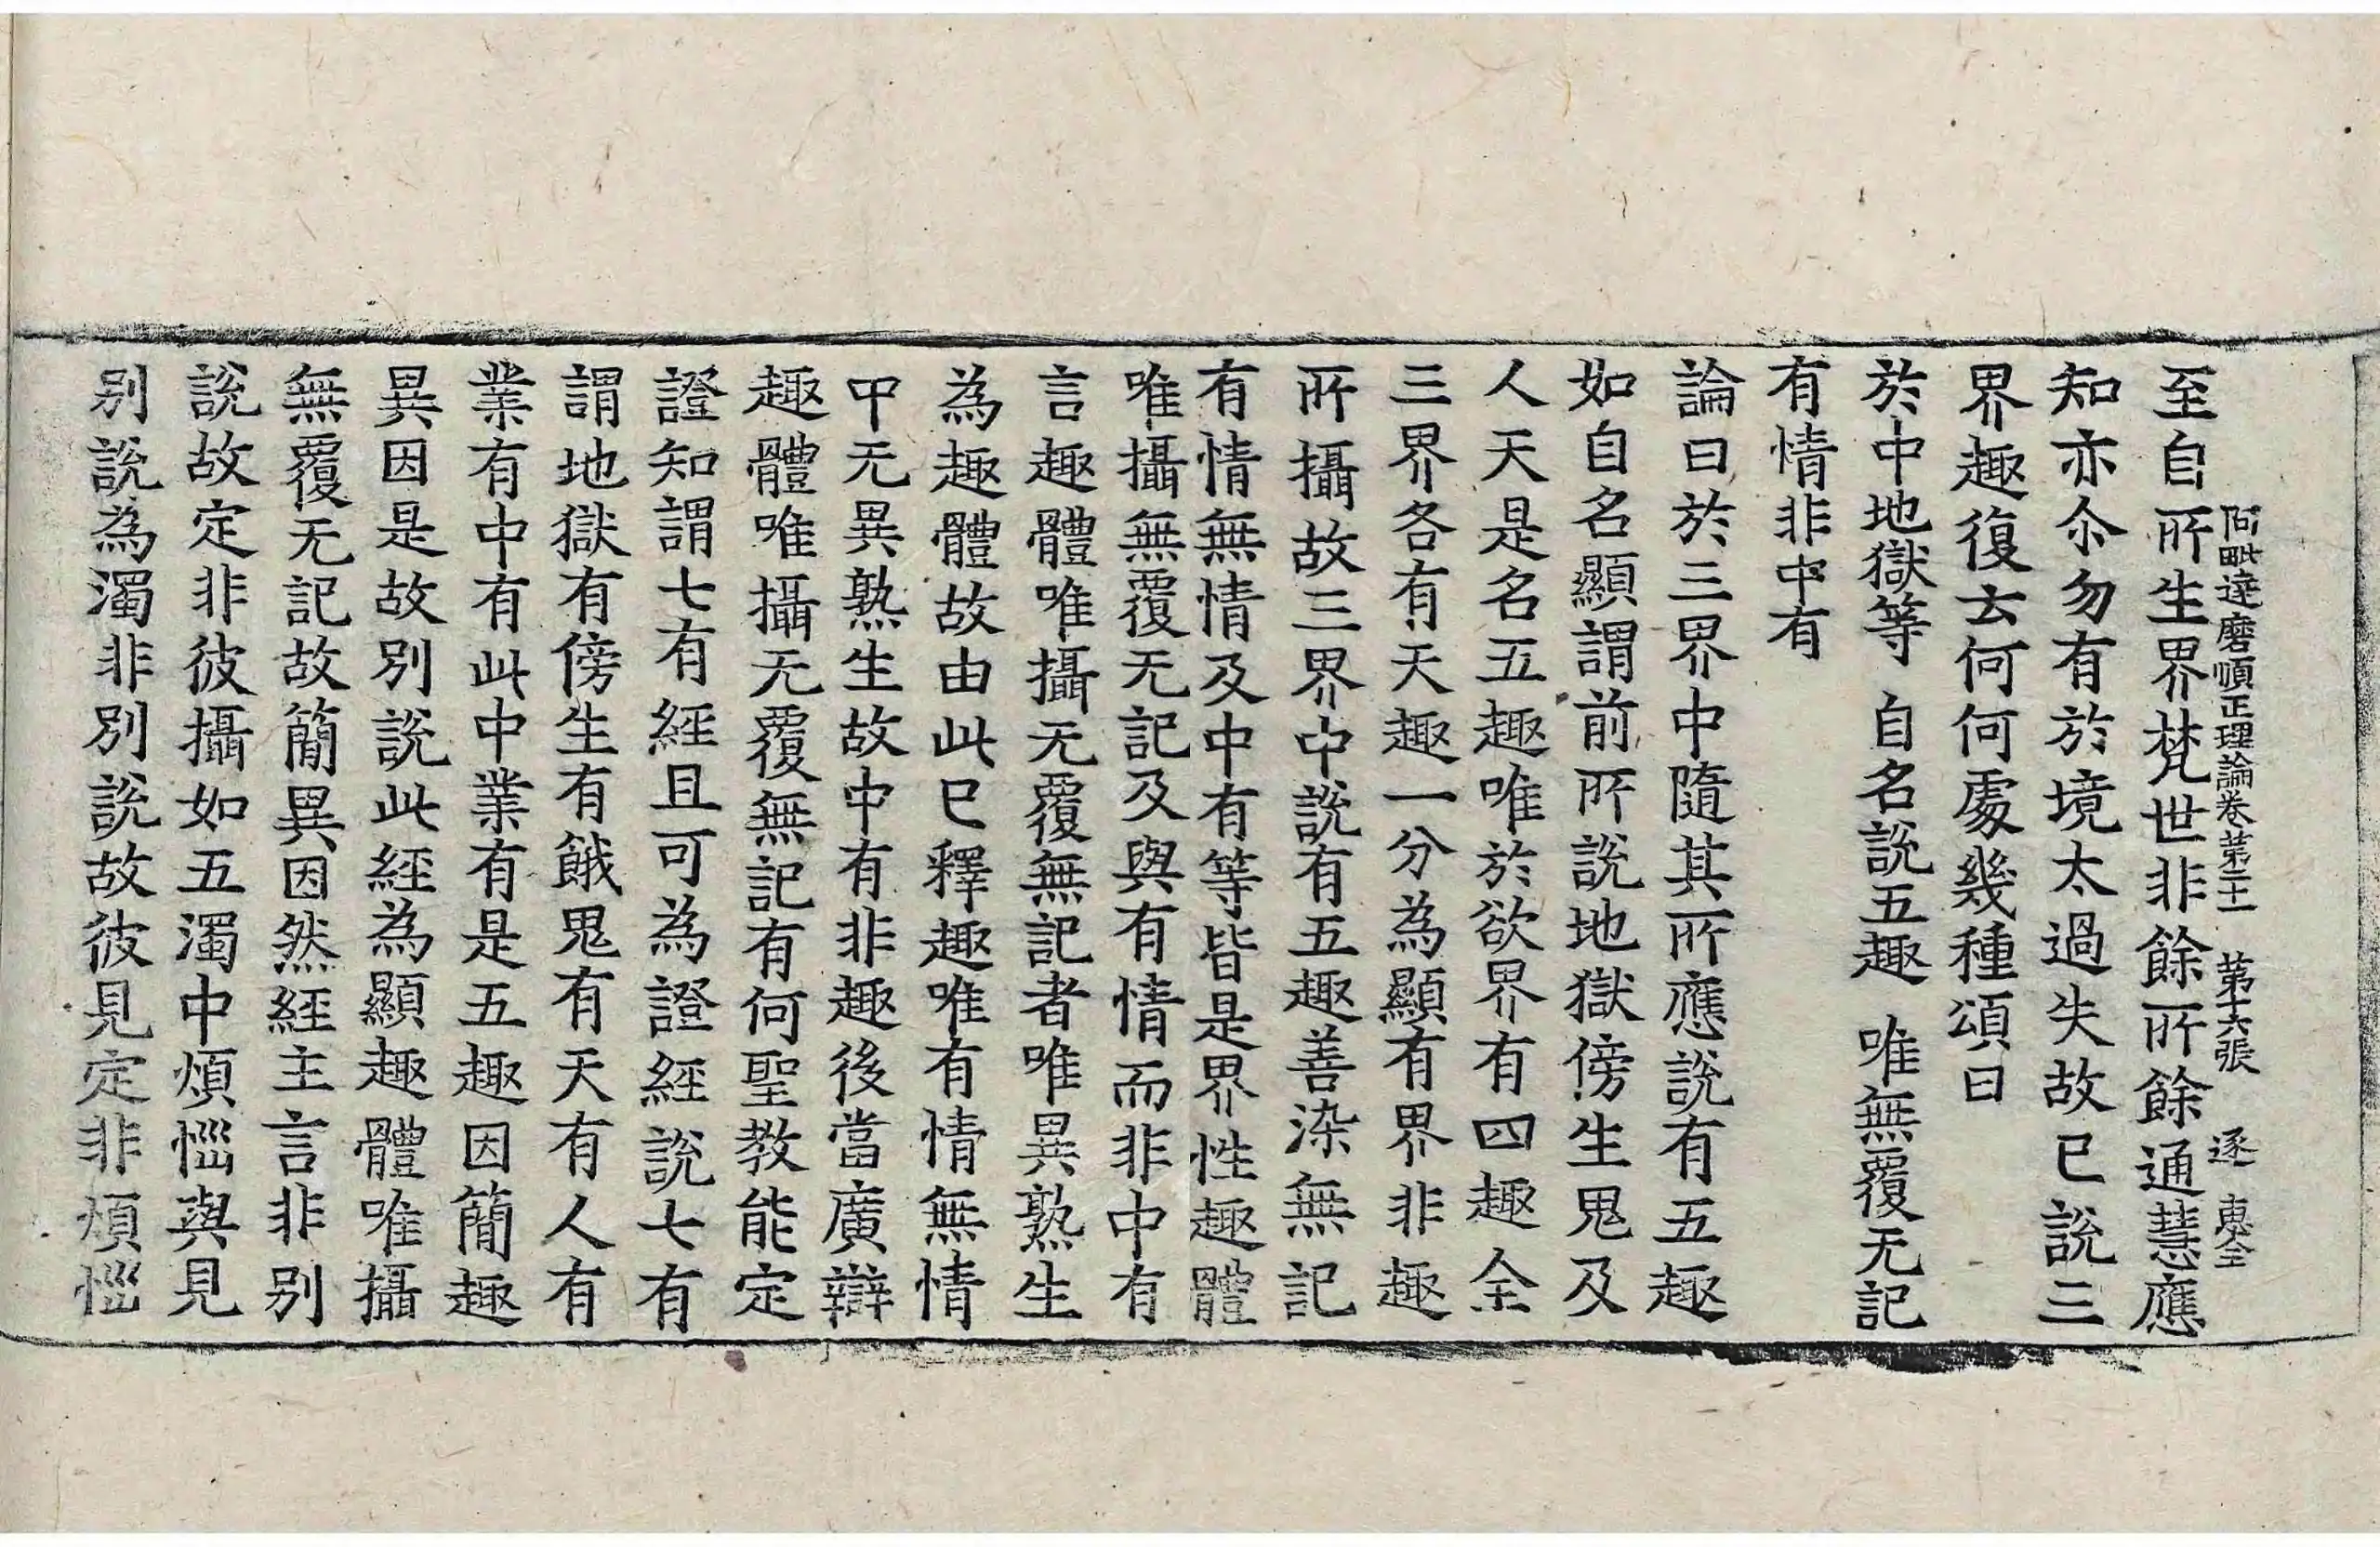 阿毗達磨順正理論卷苐二十一 苐十六張 逐 惠全
至自所生界梵世非餘所餘通慧應
知亦尒勿有於境太過失故已說三
界趣復云何何處幾種頌曰
於中地獄等 自名說五趣 唯無覆无記
有情非中有
論曰於三界中隨其所應說有五趣
如自名顯謂前所說地獄傍生鬼及
人天是名五趣唯於欲界有四趣全
三界各有天趣一分為顯有界非趣
所攝故三界中說有五趣善染無記
有情無情及中有等皆是界性趣體
唯攝無覆无記及與有情而非中有
言趣體唯攝无覆無記者唯異熟生
為趣體故由此已釋趣唯有情無情
中无異熟生故中有非趣後當廣辯
趣體唯攝无覆無記有何聖教能定
證知謂七有經且可為證經說七有
謂地獄有傍生有餓鬼有天有人有
業有中有此中業有是五趣因簡趣
異因是故別說此經為顯趣體唯攝
無覆无記故簡異因然經主言非別
說故定非彼攝如五濁中煩惱與見
别說為濁非別說故彼見定非煩惱